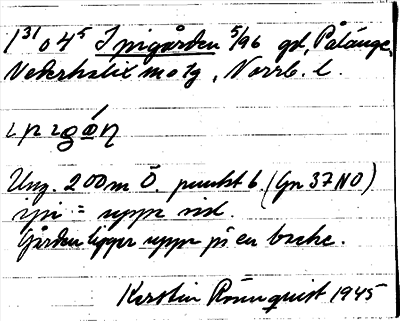 1³¹045 Ipigården 5/96 gd, Pålänge,
Nederkalix , Norrb. l.
Ung. 200 m Ö. punkt 6. (Gn 37 NO)
ipi = uppe vid.
Gården ligger uppe på en backe.
Kerstin Rönnquist 1945